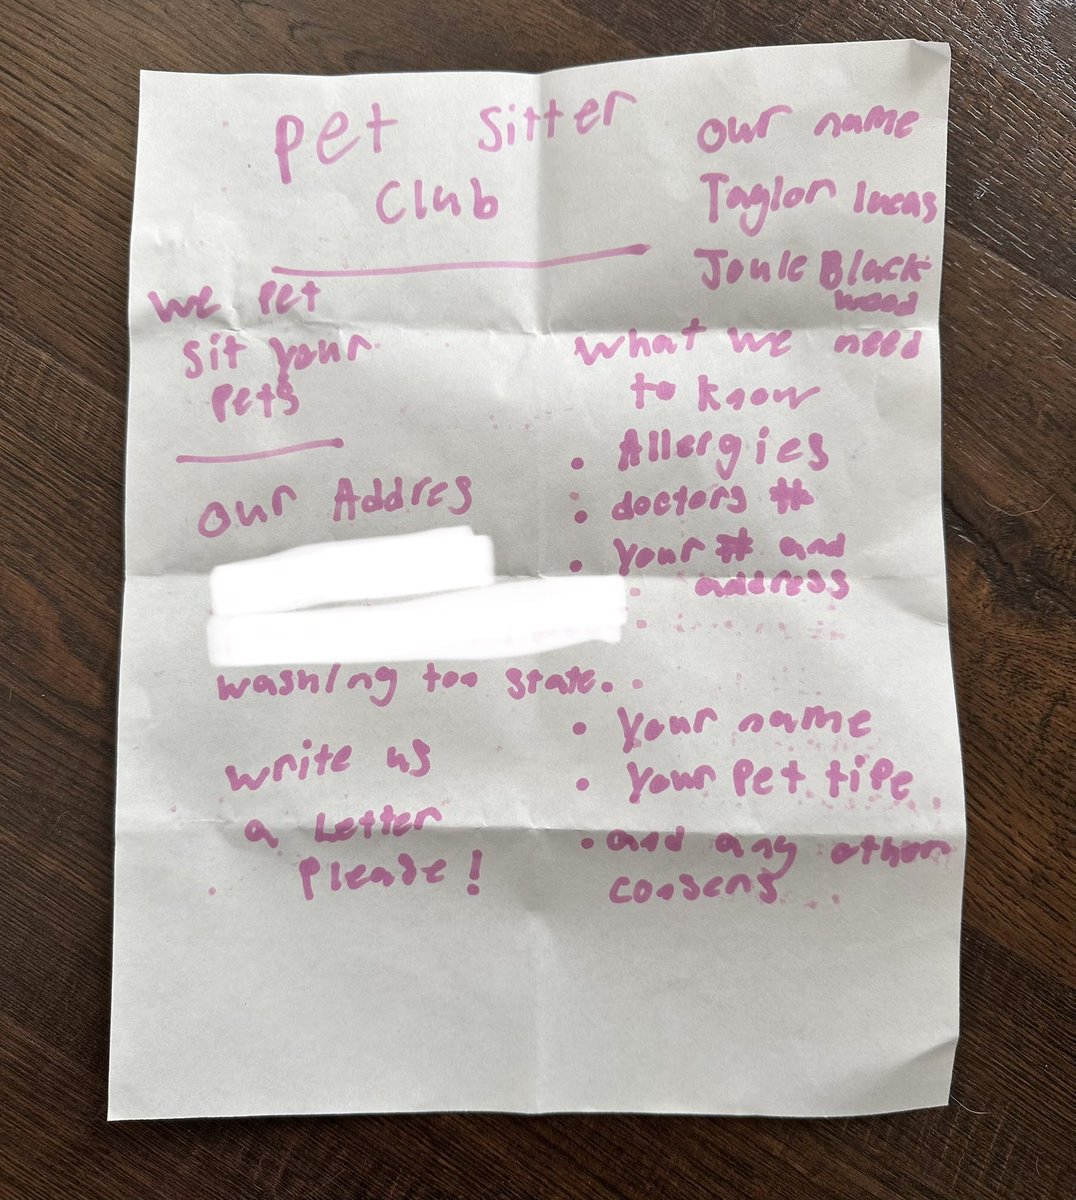 Pet Sitter
Club
We Pet
sit your
Pets
our Addres
washing ton state.
write us
a Letter
Please!
our name
Taylor lucas
Joule Black
wood
what we need
to know
• Allergies
• doctors #
• your # and
address
• your name
• your Pet tipe
• and any other
consens